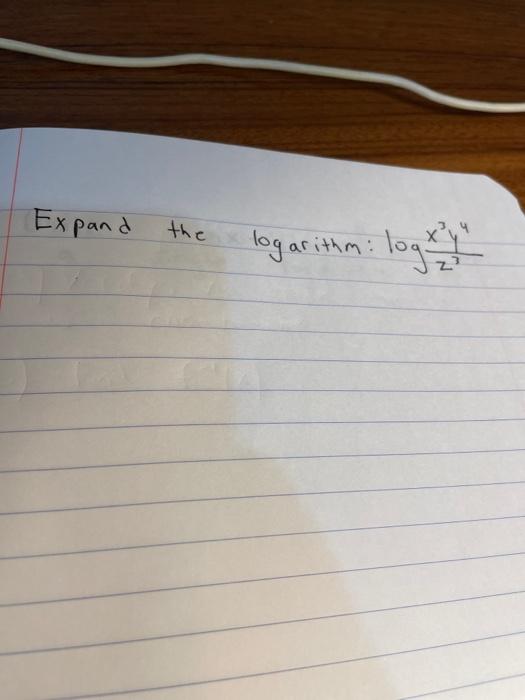 Expand the logarithm: log x³y⁴/z³